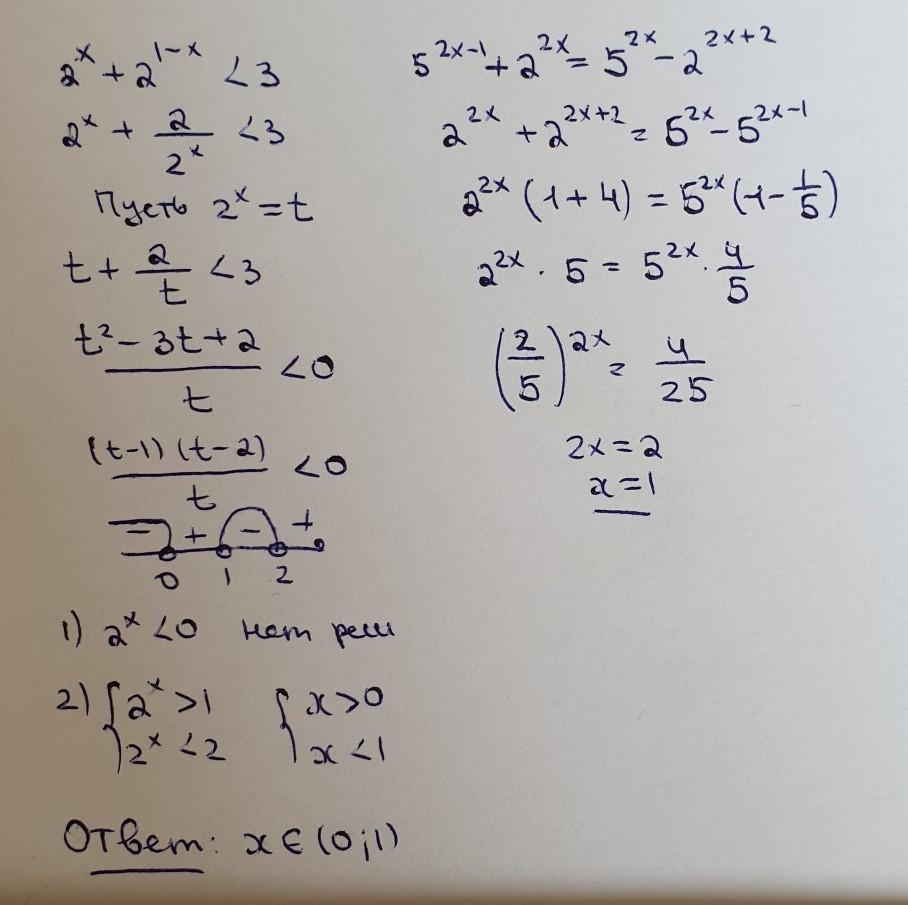 2^x + 2^{1-x} < 3
2^x + \frac{2}{2^x} < 3
Пусть 2^x = t
t + \frac{2}{t} < 3
\frac{t^2 - 3t + 2}{t} < 0
\frac{(t-1)(t-2)}{t} < 0
− + − +
0 1 2
1) 2^x < 0 нет реш
2) { 2^x > 1 { x > 0
2^x < 2 x < 1
Ответ: x ∈ (0;1)
5^{2x-1} + 2^{2x} = 5^{2x} - 2^{2x+2}
2^{2x} + 2^{2x+2} = 5^{2x} - 5^{2x-1}
2^{2x} (1 + 4) = 5^{2x} (1 - \frac{1}{5})
2^{2x} · 5 = 5^{2x} · \frac{4}{5}
(\frac{2}{5})^{2x} = \frac{4}{25}
2x = 2
x = 1